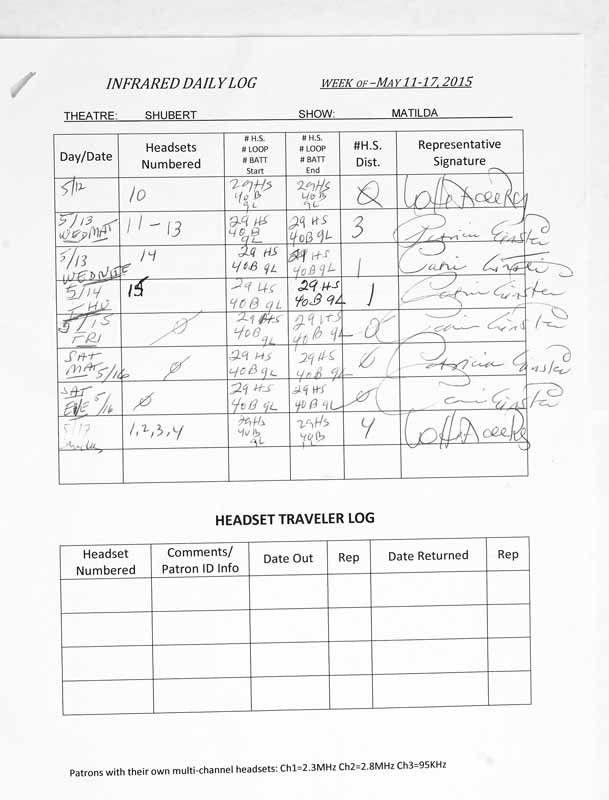 INFRARED DAILY LOG WEEK OF –MAY 11-17, 2015
THEATRE: SHUBERT SHOW: MATILDA
Day/Date Headsets Numbered # H.S. # LOOP # BATT Start # H.S. # LOOP # BATT End #H.S. Dist. Representative Signature
5/12 10 29HS 40B 9L 29HS 40B 9L 0
5/13 WEDMAT 11-13 29 HS 40B 9L 29 HS 40B 9L 3
5/13 WEDNITE 14 29 HS 40B 9L 29 HS 40B 9L 1
5/14 THU 15 29 HS 40B 9L 29 HS 40B 9L 1
5/15 FRI Ø 29 HS 40B 9L 29 HS 40B 9L Ø
SAT MAT 5/16 Ø 29 HS 40B 9L 29HS 40B 9L Ø
SAT EVE 5/16 Ø 29 HS 40B 9L 29 HS 40B 9L Ø
5/17 1,2,3,4 29HS 40B 9L 29HS 40B 9L 4
HEADSET TRAVELER LOG
Headset Numbered Comments/ Patron ID Info Date Out Rep Date Returned Rep
Patrons with their own multi-channel headsets: Ch1=2.3MHz Ch2=2.8MHz Ch3=95KHz